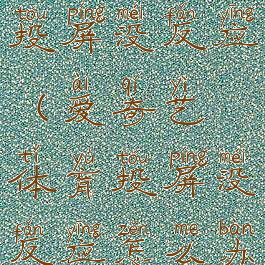 tóu píng méi fǎn yīng
投屏没反应
ài qí yì
(爱奇艺
tǐ yù tóu píng méi
体育投屏没
fǎn yīng zěn me bàn
反应怎么办